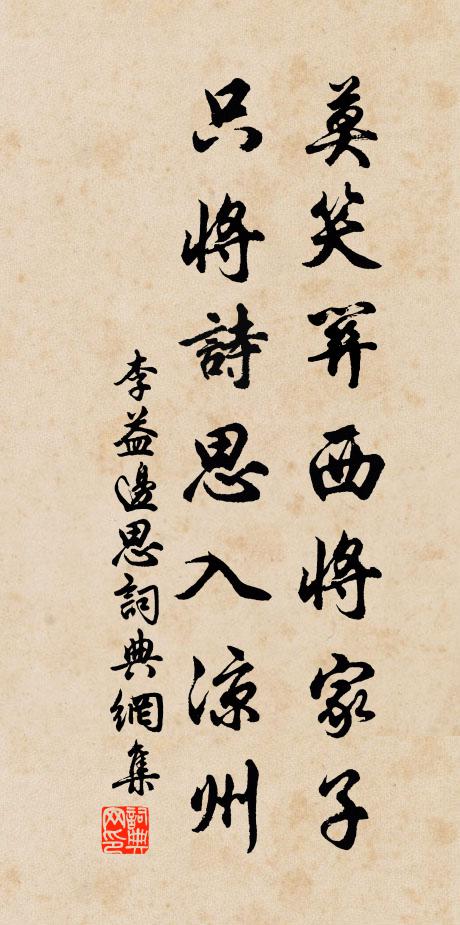 莫笑関西將家子
只將詩思入涼州
李益邊思詞典網集
詞典网印